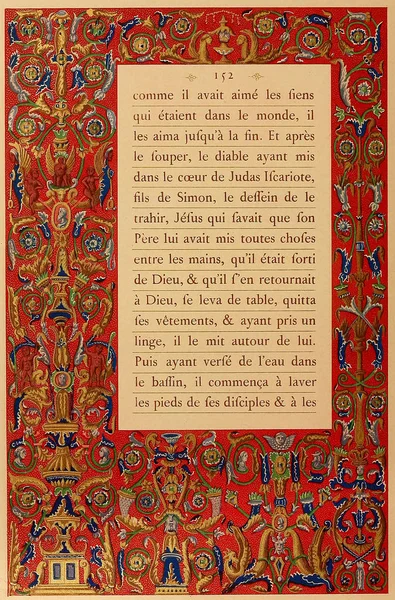 152
comme il avait aimé les ſiens
qui étaient dans le monde, il
les aima juſqu'à la fin. Et après
le ſouper, le diable ayant mis
dans le cœur de Judas Iſcariote,
fils de Simon, le deſſein de le
trahir, Jéſus qui ſavait que ſon
Père lui avait mis toutes choſes
entre les mains, qu'il était ſorti
de Dieu, & qu'il ſ'en retournait
à Dieu, ſe leva de table, quitta
ſes vêtements, & ayant pris un
linge, il le mit autour de lui.
Puis ayant verſé de l'eau dans
le baſſin, il commença à laver
les pieds de ſes diſciples & à les